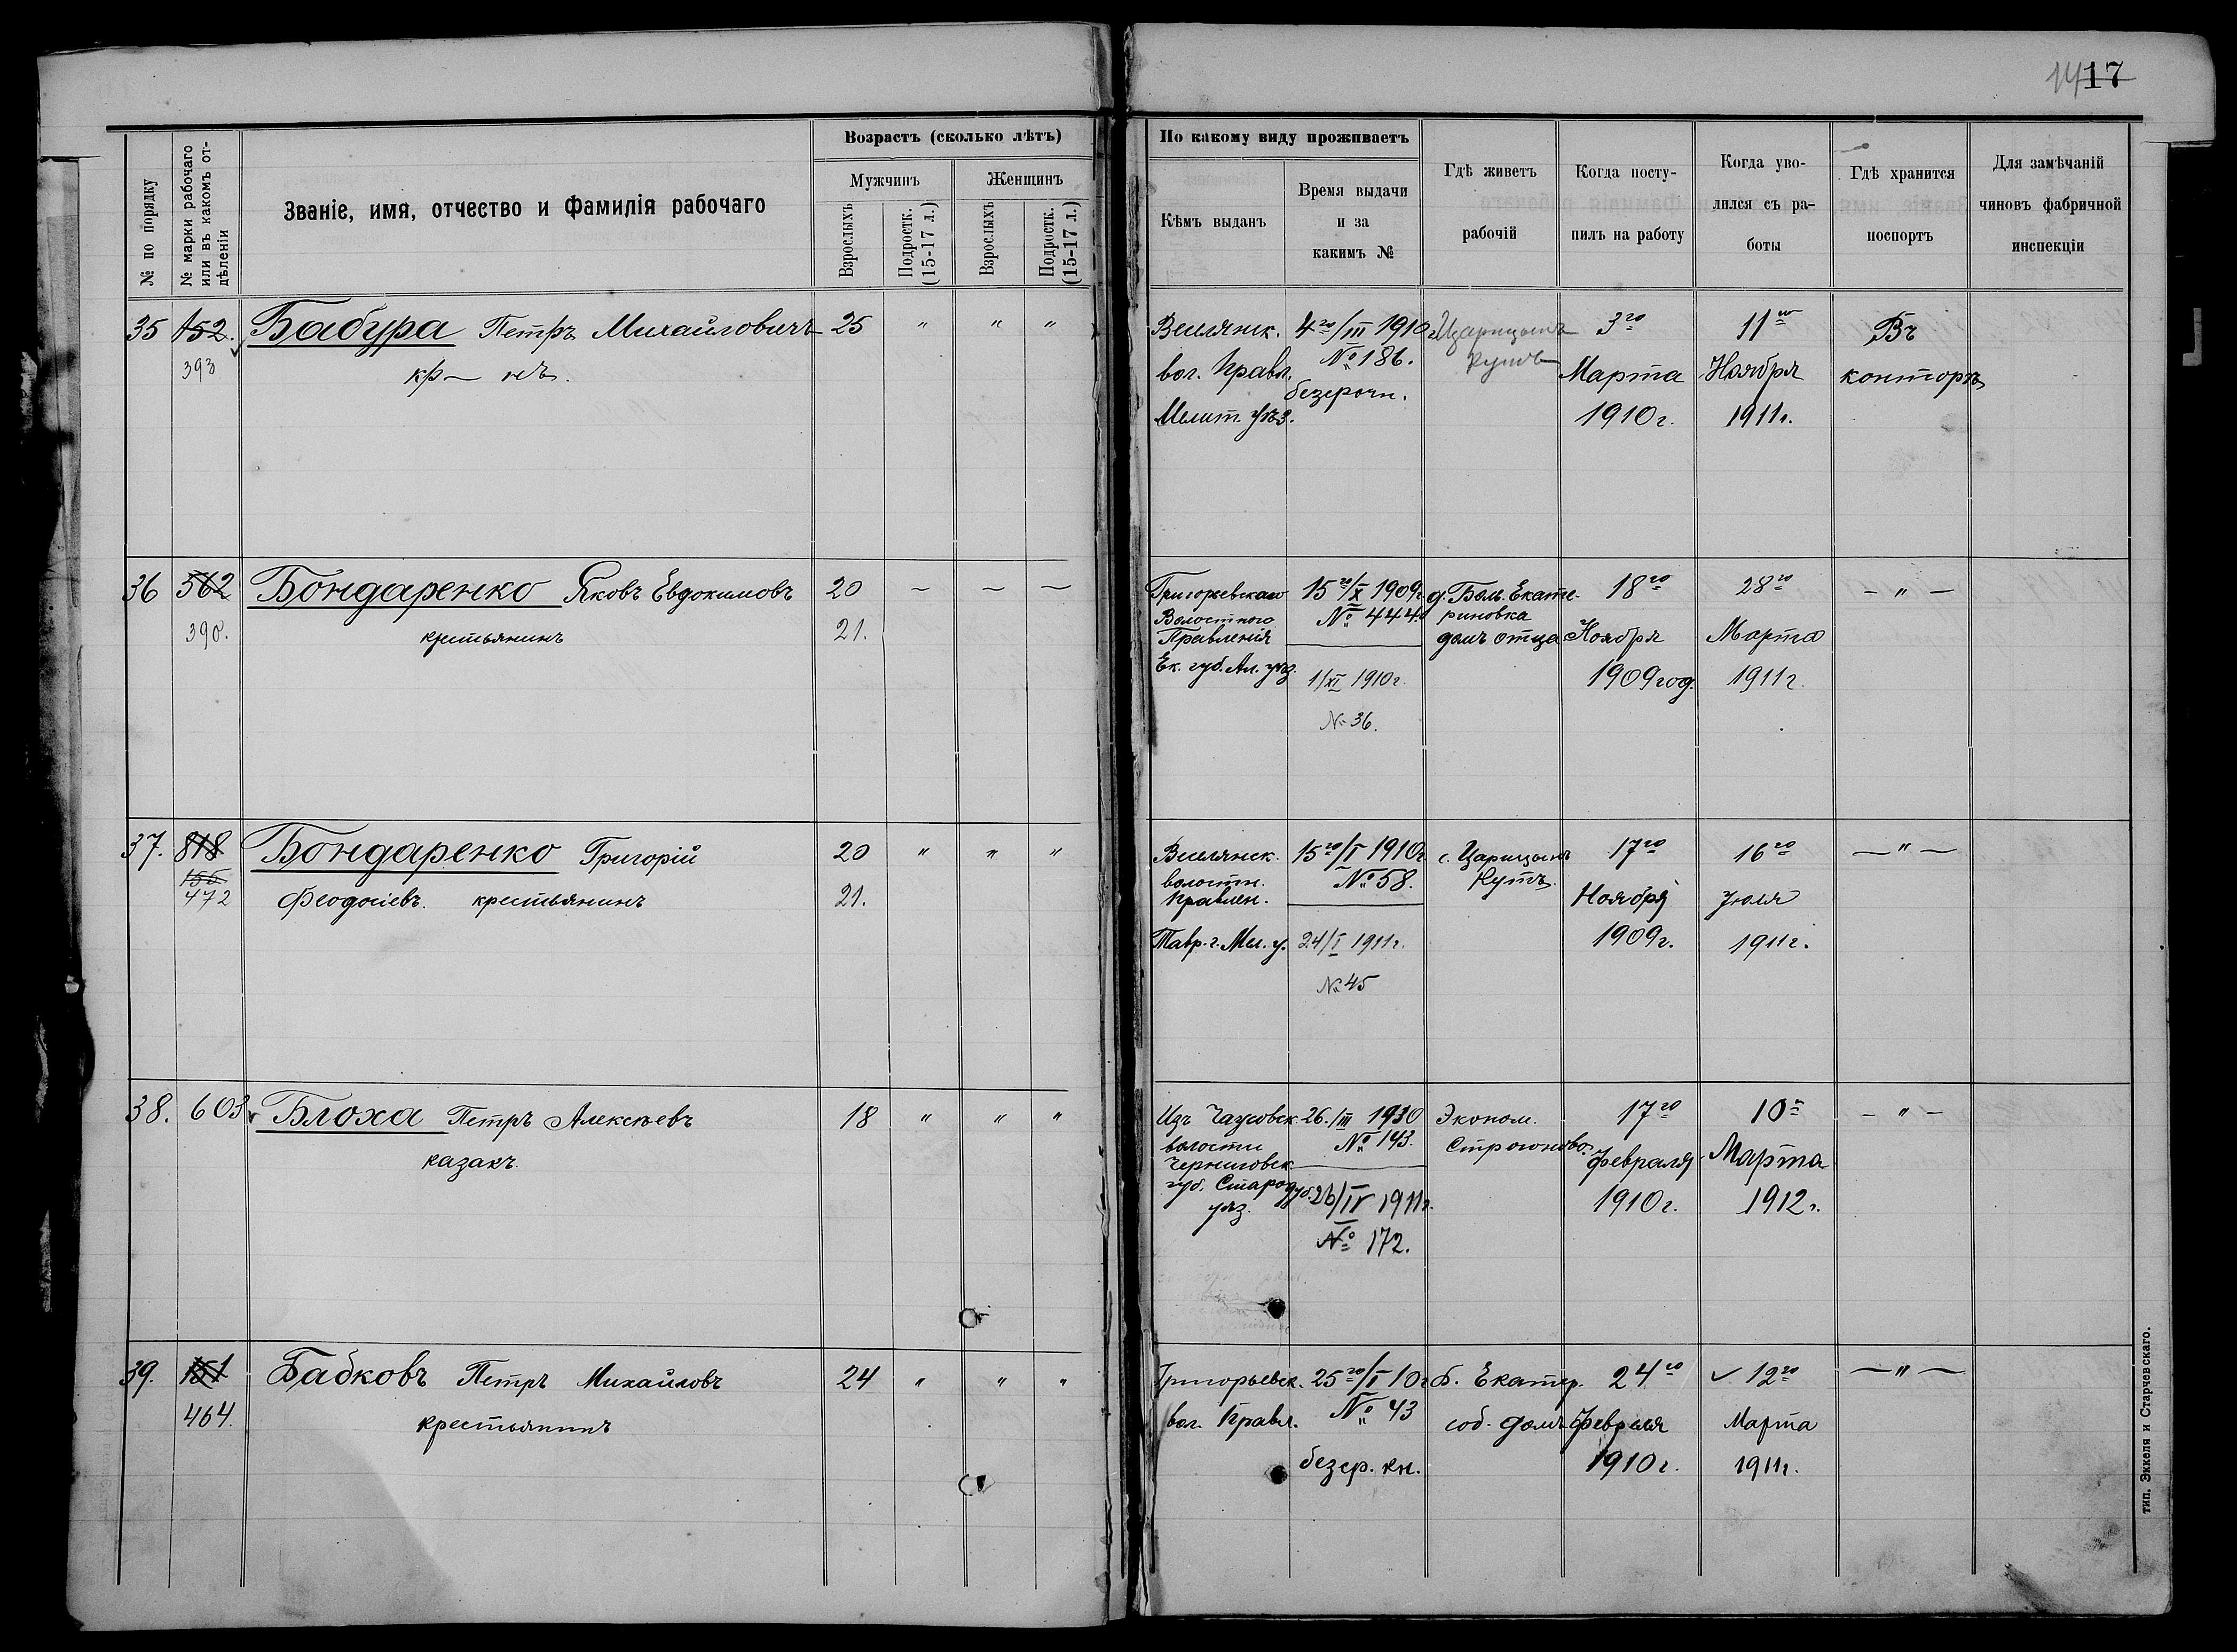 17
№ по порядку
№ марки рабочаго
или въ какомъ от-
дѣленіи
Званіе, имя, отчество и фамилія рабочаго
Возрастъ (сколько лѣтъ)
Мужчинъ
Женщинъ
Взрослыхъ
Подростк.
(15-17 л.)
Взрослыхъ
Подростк.
(15-17 л.)
По какому виду проживаетъ
Кѣмъ выданъ
Время выдачи
и за
какимъ №
Гдѣ живетъ
рабочій
Когда посту-
пилъ на работу
Когда уво-
лился съ ра-
боты
Гдѣ хранится
поспортъ
Для замѣчаній
чиновъ фабричной
инспекціи
35
152.
393
Бабура Петръ Михайловичъ
кр — нъ.
25 " " "
Веселянск.
вол. Правл.
Мелит. уѣз.
4го/III 1910г
№ 186.
безсрочн.
Царицынъ
Кутъ
3го
Марта
1910 г.
11го
Ноября
1911г.
Въ
конторѣ
36
562
390.
Бондаренко Яковъ Евдокимовъ
крестьянинъ
20 — — —
21.
Григорьевскаго
Волостного
Правленія
Ек. губ. Ал. уѣз.
15го/X 1909г
№ 444.
1/XI 1910 г.
№ 36.
д. Бол. Екате-
риновка
домъ отца
18го
Ноября
1909 год.
28го
Марта
1911 г.
— " —
37.
818
155
472
Бондаренко Григорій
Феодосіевъ. крестьянинъ
20 " " "
21.
Веселянск.
волостн.
Правлен.
Тавр. г. Мел. у.
15го/I 1910г
№ 58.
24/I 1911г.
№ 45
с. Царицынъ
Кутъ.
17го
Ноября
1909 г.
16го
Іюля
1911 г.
— " —
38.
603
Блоха Петръ Алексѣевъ
казакъ.
18 " " "
волости
Черниговск.
губ. Стародуб.
уѣз.
26./III 1910
№ 143.
26/IV 1911г.
№ 172.
Эконом.
17го
Февраля
1910 г.
10го
Марта
1912 г.
— " —
39.
151
464.
Бабковъ Петръ Михайловъ
крестьянинъ
24 " " "
Григорьевск.
вол. Правл.
25го/I 10г
№ 43
безср. кн.
Б. Екатер.
соб. домъ
24го
Февраля
1910 г.
12го
Марта
1911г.
— " —
тип. Эккеля и Старчевскаго.